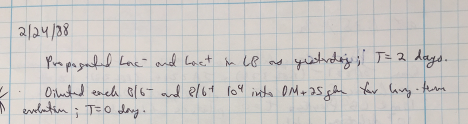 2/24/88
Propagated Lac⁻ and Lac⁺ in LB as yesterday; T = 2 days.
Diluted each B/6⁻ and B/6⁺ 10⁴ into DM+25 glu for long-term
evolution; T=0 day.